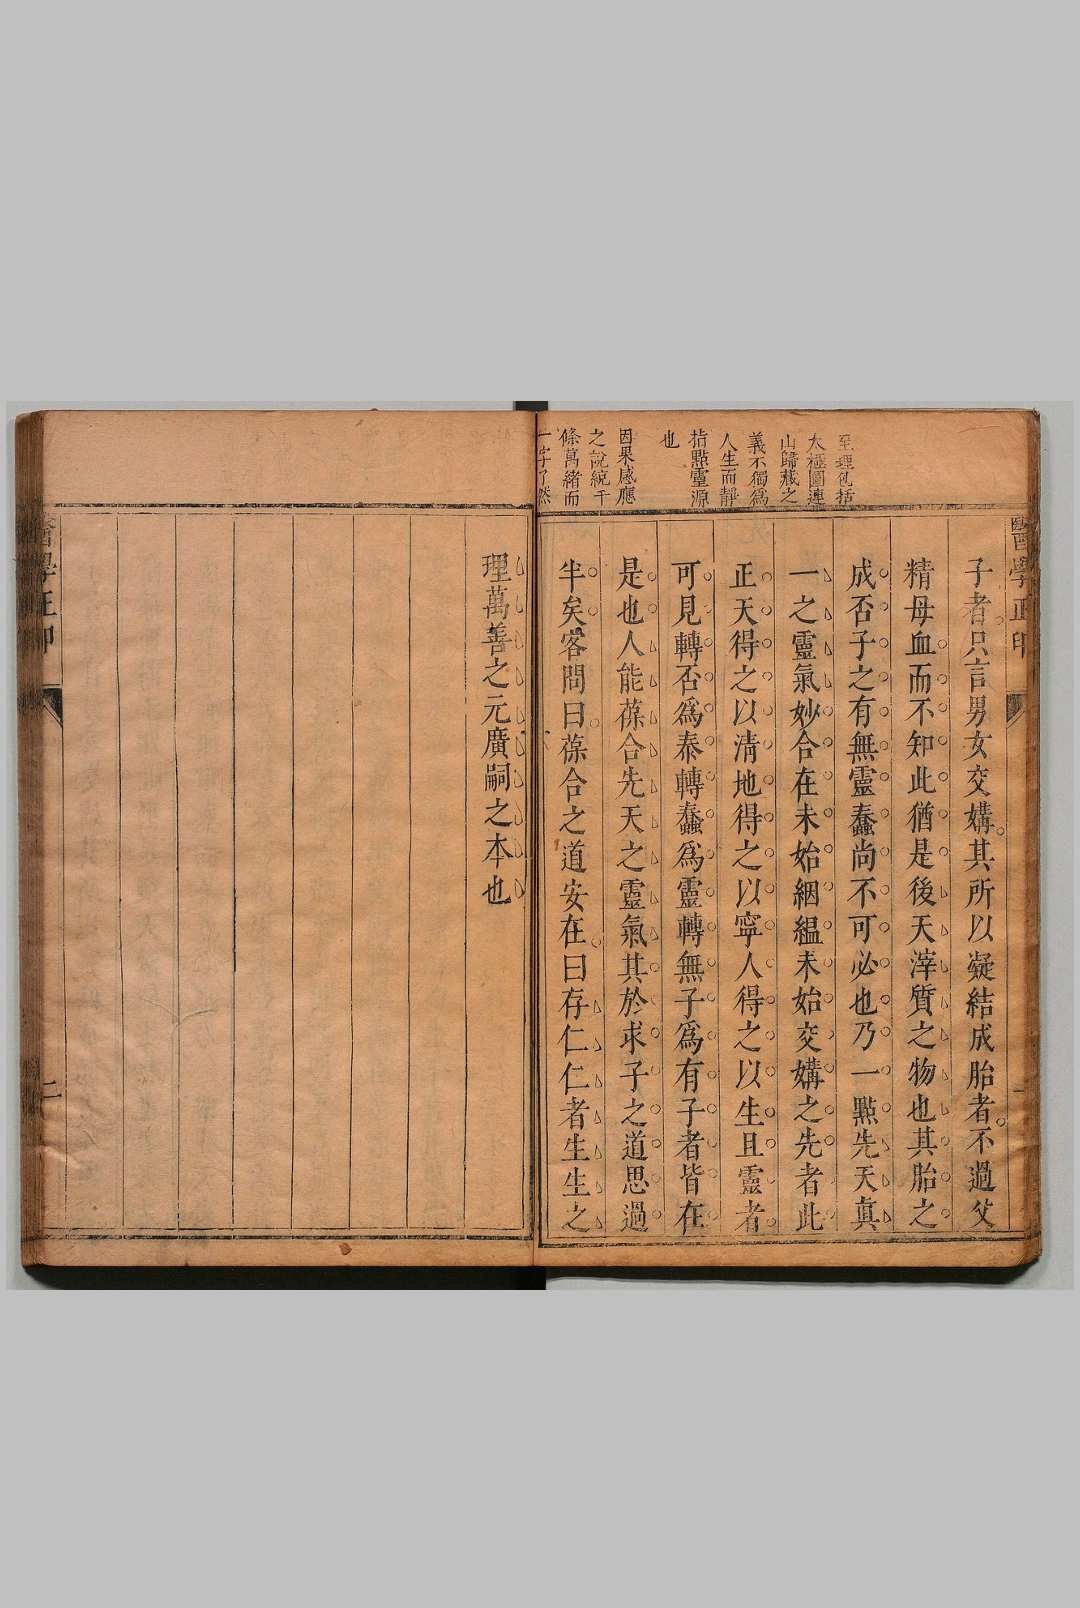 醫學正印
至理包括
太極圖連
山歸藏之
義不獨為
人生而靜
指點靈源
也
因果感應
之說統千
條萬緒而
一字了然
子者只言男女交媾其所以凝結成胎者不過父
精母血而不知此猶是後天滓質之物也其胎之
成否子之有無靈蠢尚不可必也乃一點先天真
一之靈氣妙合在未始絪縕未始交媾之先者此
正天得之以清地得之以寧人得之以生且靈者
可見轉否為泰轉蠢為靈轉無子為有子者皆在
是也人能葆合先天之靈氣其於求子之道思過
半矣客問曰葆合之道安在曰存仁仁者生生之
理萬善之元廣嗣之本也
醫學正印
二